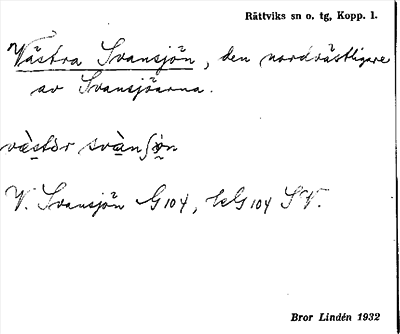 Rättviks sn o. tg, Kopp. l.
Västra Svansjön, den nordvästligare
av Svansjöarna.
västər svànʃön
V. Svansjön G104, G104 SV.
Bror Lindén 1932